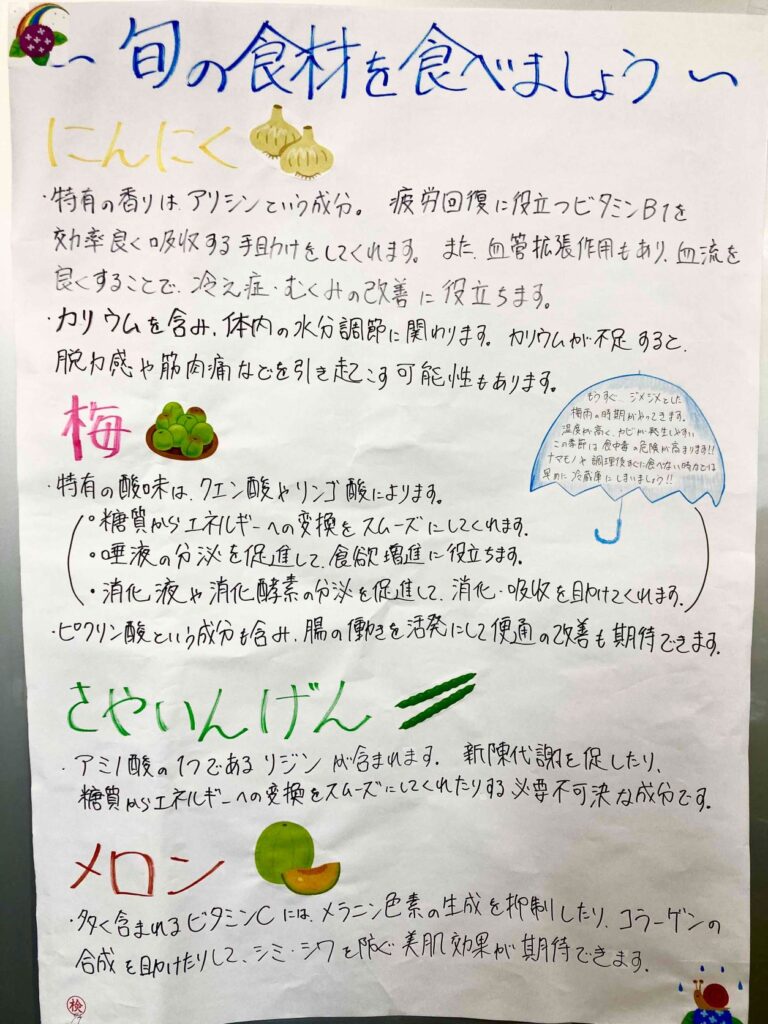 〜旬の食材を食べましょう〜
にんにく
・特有の香りは、アリシンという成分。 疲労回復に役立つビタミンB1を
効率良く吸収する手助けをしてくれます。 また、血管拡張作用もあり、血流を
良くすることで、冷え症・むくみの改善に役立ちます。
・カリウムを含み、体内の水分調節に関わります。カリウムが不足すると、
脱力感や筋肉痛などを引き起こす可能性もあります。
もうすぐ、ジメジメとした
梅雨の時期がやってきます。
温度が高く、カビが発生しやすい
この季節は食中毒の危険が高まります!!
ナマモノや調理後すぐに食べない時などは
早めに冷蔵庫にしまいましょう!!
梅
・特有の酸味は、クエン酸やリンゴ酸によります。
・糖質からエネルギーへの変換をスムーズにしてくれます。
・唾液の分泌を促進して、食欲増進に役立ちます。
・消化液や消化酵素の分泌を促進して、消化・吸収を助けてくれます。
・ピクリン酸という成分も含み、腸の働きを活発にして便通の改善も期待できます。
さやいんげん
・アミノ酸の1つであるリジンが含まれます。 新陳代謝を促したり、
糖質からエネルギーへの変換をスムーズにしてくれたりする必要不可決な成分です。
メロン
・多く含まれるビタミンCには、メラニン色素の生成を抑制したり、コラーゲンの
合成を助けたりして、シミ・シワを防ぐ美肌効果が期待できます。
検